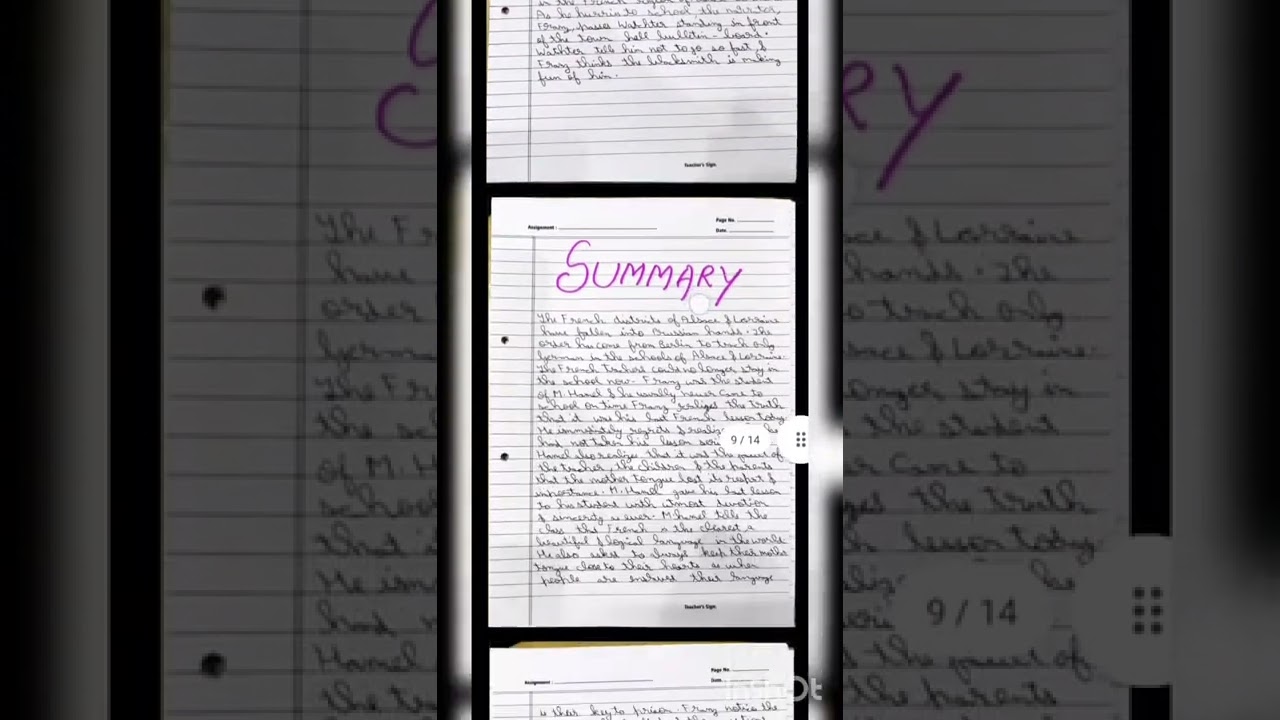 As he hurries to school the narrator,
Franz passes Watchter standing in front
of the town hall bulletin - board.
Watchter tells him not to go so fast &
Franz thinks the blacksmith is making
fun of him.
Teacher's Sign
Assignment :
Page No.
Date.
SUMMARY
The French districts of Alsace & Lorraine
have fallen into Prussian hands. The
order has come from Berlin to teach only
German in the schools of Alsace & Lorraine.
The French Teachers could no longer stay in
the school now. Franz was the student
of M. Hamel & he usually never came to
school on time Franz realizes the truth
that it was his last French lesson today
He immediately regrets & realiz he
had not taken his lesson seri
Hamel also realizes that it was the of
the teacher, the children & the parents
that the mother tongue lost its respect &
importance. M. Hamel gave his last lesson
to his student with utmost devotion
& sincerity as ever. M Hamel tells the
class that French is the clearest a
beautiful & logical language in the world
He also asks to always keep their mother
tongue close to their hearts as when
people are enslaved their language
9 / 14
Teacher's Sign
Assignment :
Page No.
Date.
is their key to prison. Franz notice the